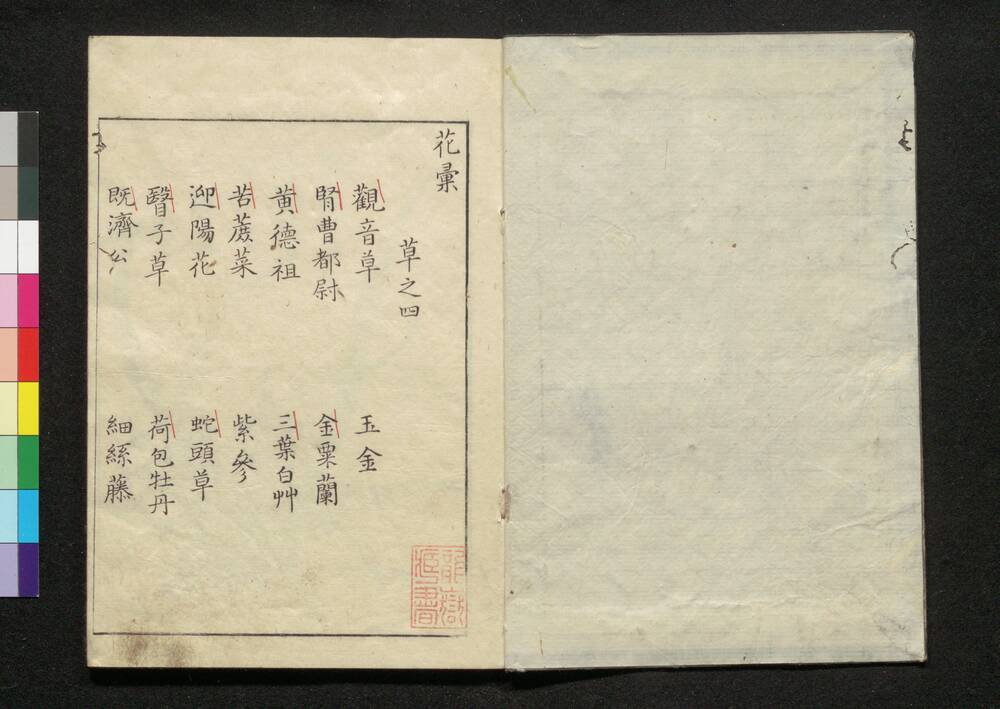 花彙
草之四
觀音草 玉金
腎曹都尉 金粟蘭
黄德祖 三葉白艸
苦蔍菜 紫參
迎陽花 蛇頭草
瞖子草 荷包牡丹
既濟公 細絲藤
龍嶽
藏書